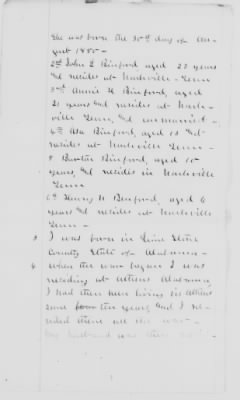 She was born the 30th day of Au-
gust 1850 -
2nd John L Binford aged 23 years
and resides at Nashville - Tenn
3rd Annie H Binford, aged
21 years and resides at Nash-
ville Tenn, and unmarried -
4th Asa Binford, aged 18 and
resides at Nashville Tenn -
5 Burton Binford, aged 10
years and resides in Nashville
Tenn
6th Henry H Binford, aged 6
years and resides at Nashville
Tenn -
I was born in Lime Stone
County State of Alabama -
When the war begun I was
residing at Athens Alabama,
I had then been living in Athens
some four ten years and I re-
sided there all the war -
my husband was there